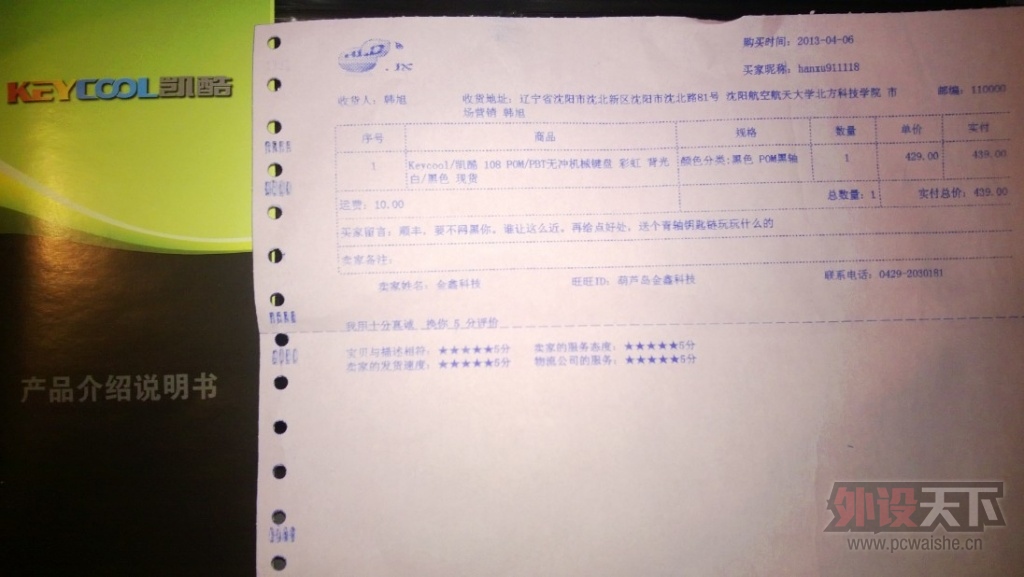 KEYCOOL凯酷
产品介绍说明书
.JX
购买时间：2013-04-06
买家昵称：hanxu911118
收货人：韩旭
收货地址：辽宁省沈阳市沈北新区沈阳市沈北路81号 沈阳航空航天大学北方科技学院 市
场营销 韩旭
邮编：110000
序号 商品 规格 数量 单价 实付
1 Keycool/凯酷 108 POM/PBT无冲机械键盘 彩虹 背光 颜色分类:黑色 POM黑轴 1 429.00 439.00
白/黑色 现货
总数量：1 实付总价：439.00
运费：10.00
买家留言：顺丰，要不网黑你。谁让这么近。再给点好处，送个青轴钥匙链玩玩什么的
卖家备注：
卖家姓名：金鑫科技 旺旺ID：葫芦岛金鑫科技 联系电话：0429-2030181
我用十分真诚 换你 5 分评价
宝贝与描述相符：★★★★★5分 卖家的服务态度：★★★★★5分
卖家的发货速度：★★★★★5分 物流公司的服务：★★★★★5分
外设天下
www.pcwaishe.cn